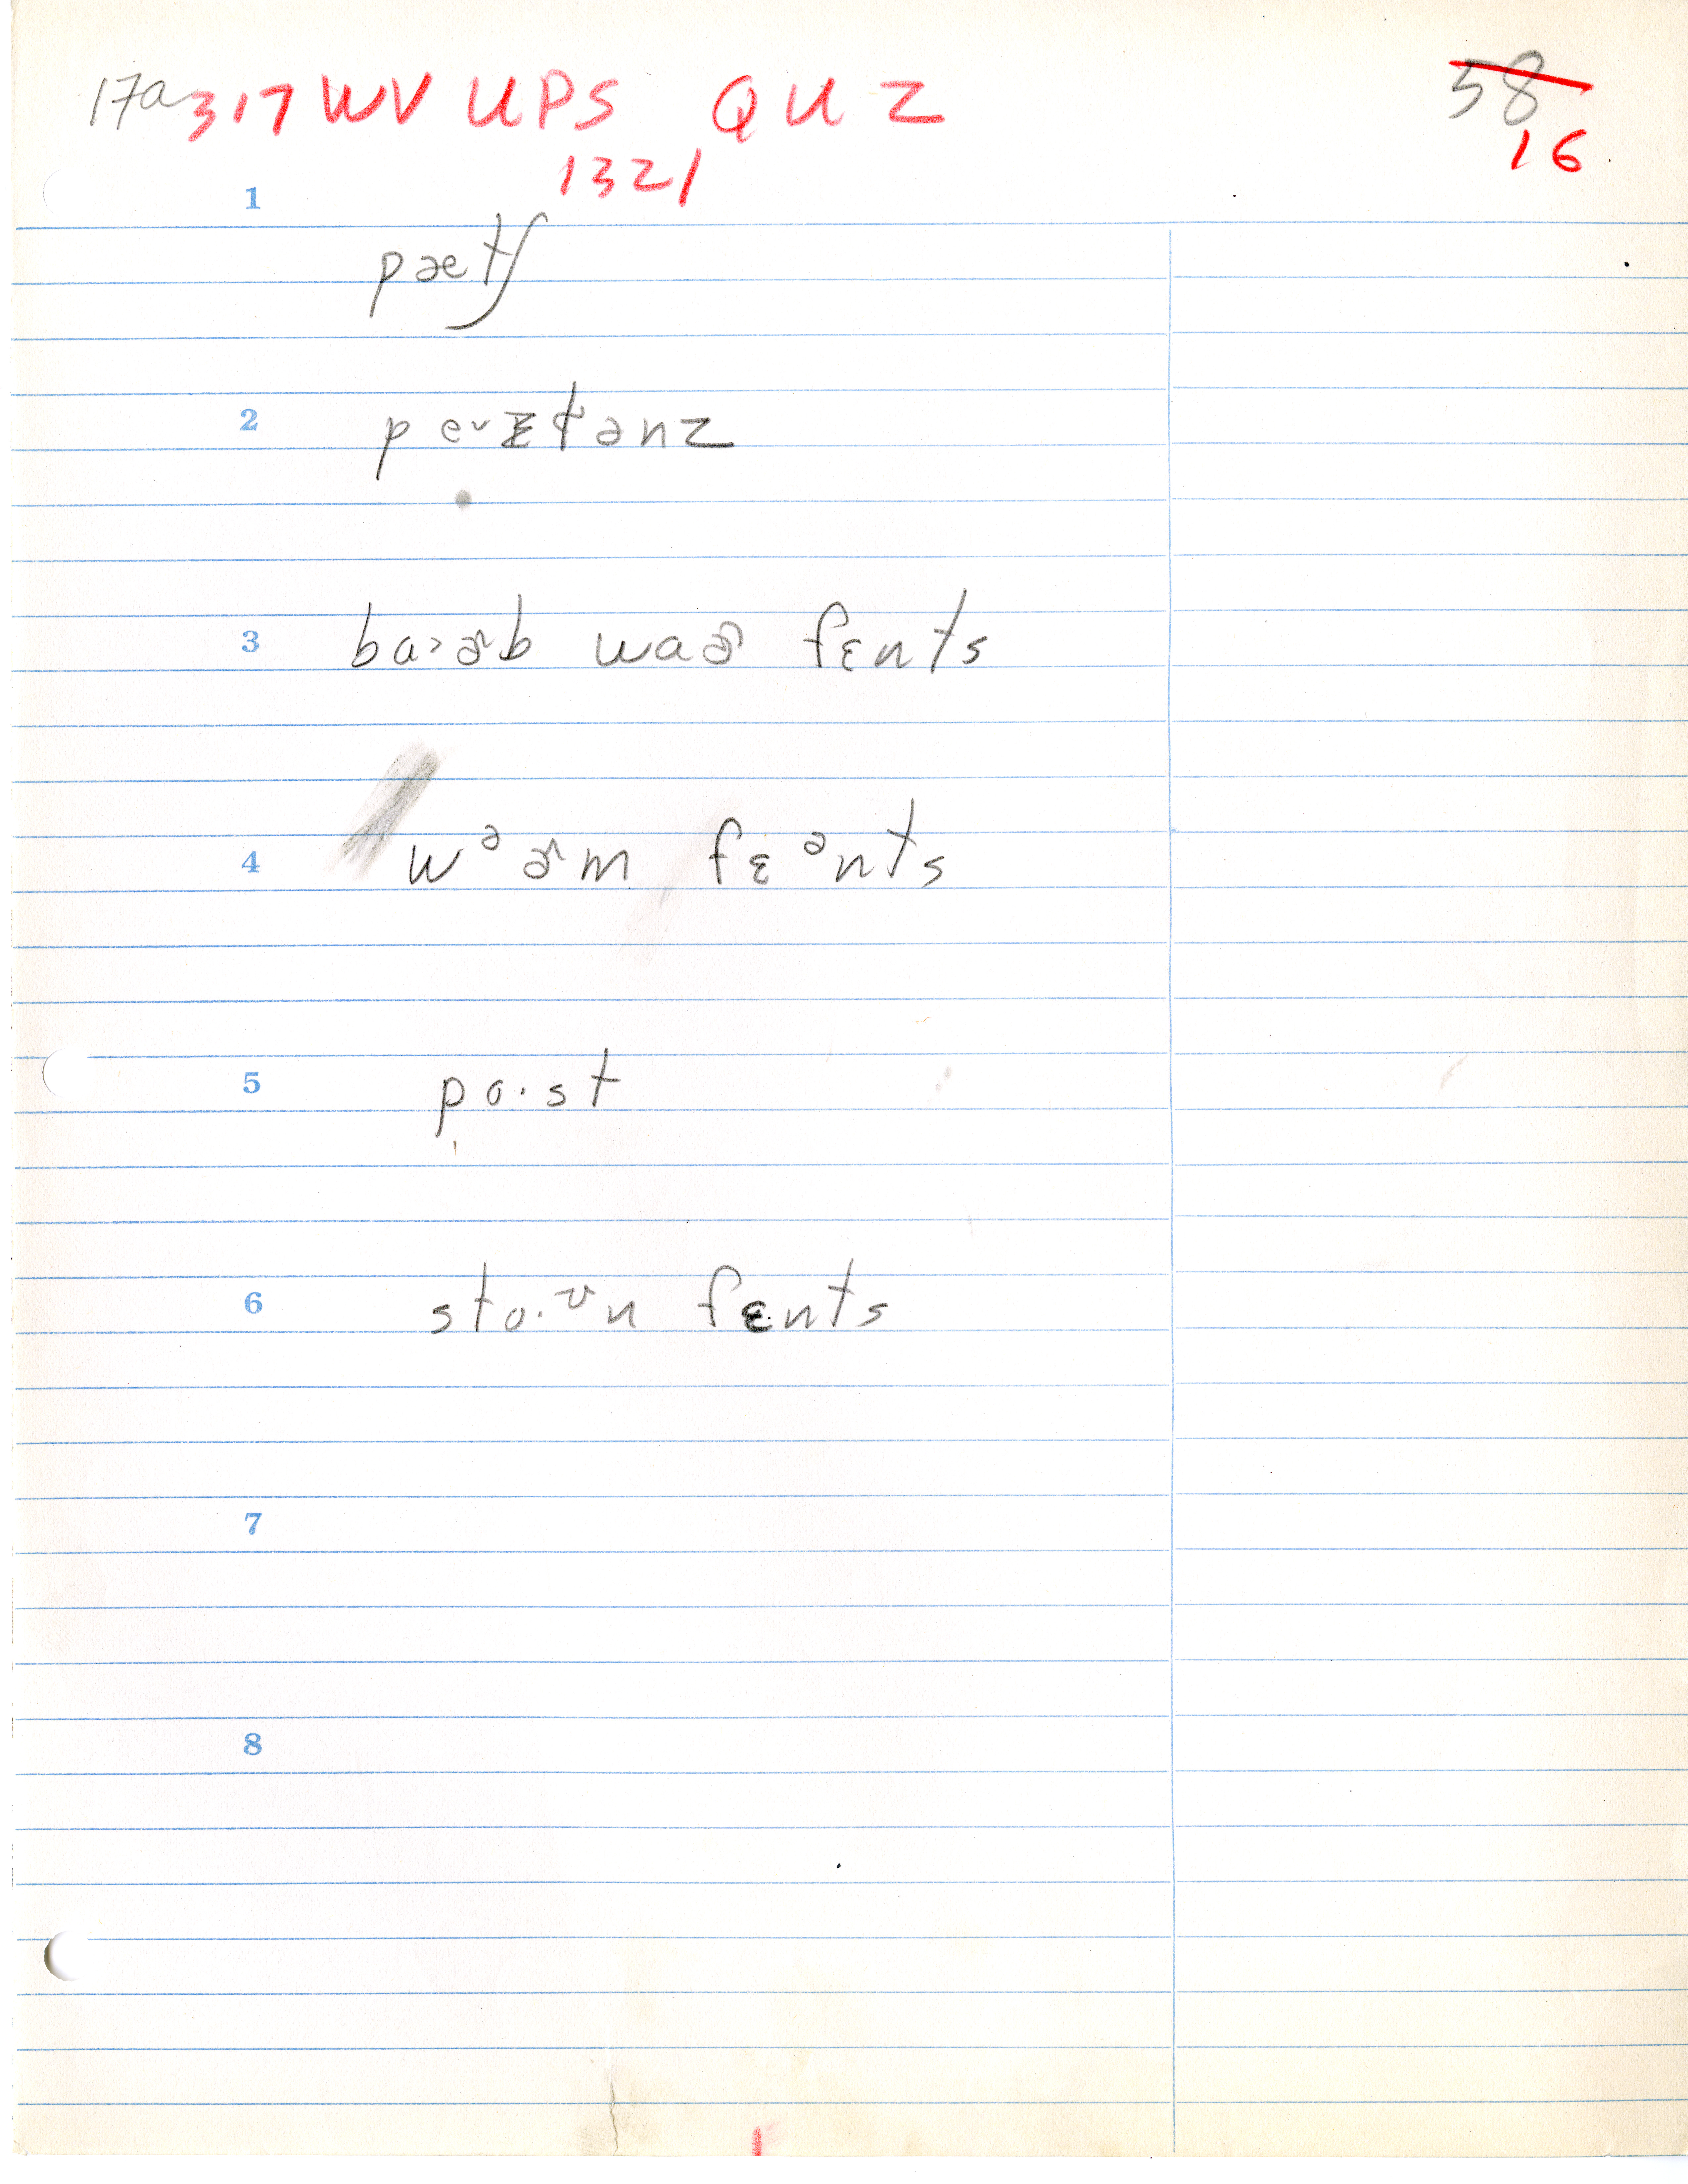 17a 317 WV UPS QUZ 58
1321 16
1
pætʃ
2 pɛᵛztənz
3 ba>ɚb waɚ fɛnts
4 wᵊɚm fɛᵊnts
5 po·st
6 sto·ᶷn fɛnts
7
8